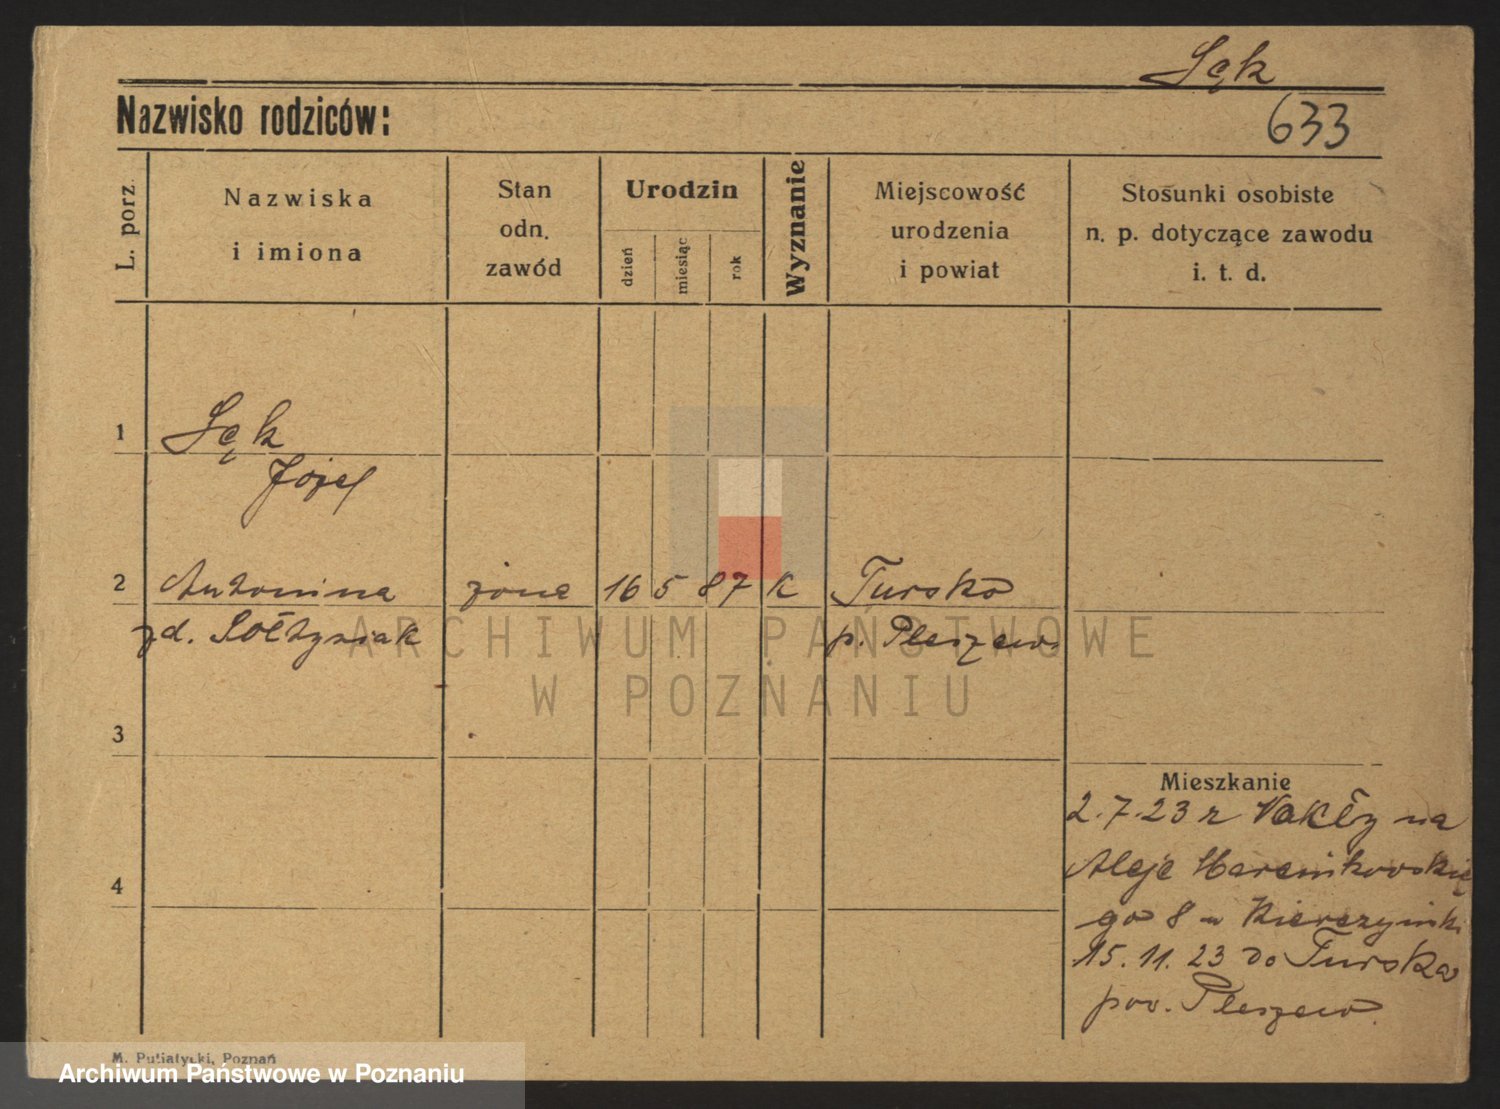 Sęk
Nazwisko rodziców:
633
L. porz.
Nazwiska
i imiona
Stan
odn.
zawód
Urodzin
dzień
miesiąc
rok
Wyznanie
Miejscowość
urodzenia
i powiat
Stosunki osobiste
n. p. dotyczące zawodu
i. t. d.
1
Sęk
Józef
2 Antonina żona 16 5 87 K Tursko
zd. Sołtysiak p. Pleszew
ARCHIWUM PAŃSTWOWE
W POZNANIU
3
Mieszkanie
2.7.23 r na
Aleje
4
go 8 u
15.11.23 do Turska
pow. Pleszew.
M. Putiatycki, Poznań
Archiwum Państwowe w Poznaniu